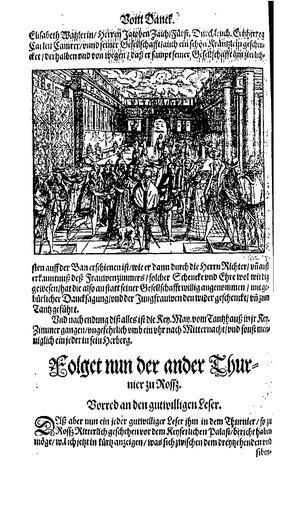 Vom Danck.
Elisabeth Wählerin/ Herren Jacoben Fuich/ Fürst. Durchleucht. Ertzhertzog
Carlen Camrer/ vnnd seiner Gesellschafft/ auch ein schön Kräntzlein geschen-
cket/ derhalben vnd von wegen/ daß er sampt seiner Gesellschafft am zierlich-
sten auff der Ban erschienen ist/ wie er dann durch die Herrn Richter/ vnd auß
erkanntnuß deß Frauwenzimmers/ solcher Schenck vnd Ehre wol wirdig
gewesen/ hat die also anstatt seiner Gesellschafft willig angenommen/ mit ge-
bürlicher Dancksagung/ vnd der Jungfrauwen den wider geschenckt/ vnd zum
Tantz geführt.
Vnd nach endung diß alles ist die Key. May. vom Tantzhauß in jr Key.
Zimmer gangen/ vngefehrlich vmb ein vhr nach Mitternacht/ vnd sonst men-
niglich ein jeder in sein Herberg.
Folget nun der ander Thur-
nier zu Rossz.
Vorred an den gutwilligen Leser.
Daß aber nun ein jeder gutwilliger Leser jhm in dem Thurnier/ so zu
Rossz Ritterlich geschehen vor dem Keyserlichen Palast/ bericht haben
möge/ wil ich jetzt in kürtz anzeigen/ was sich zwischen dem dreytzehenden vnd
siben-